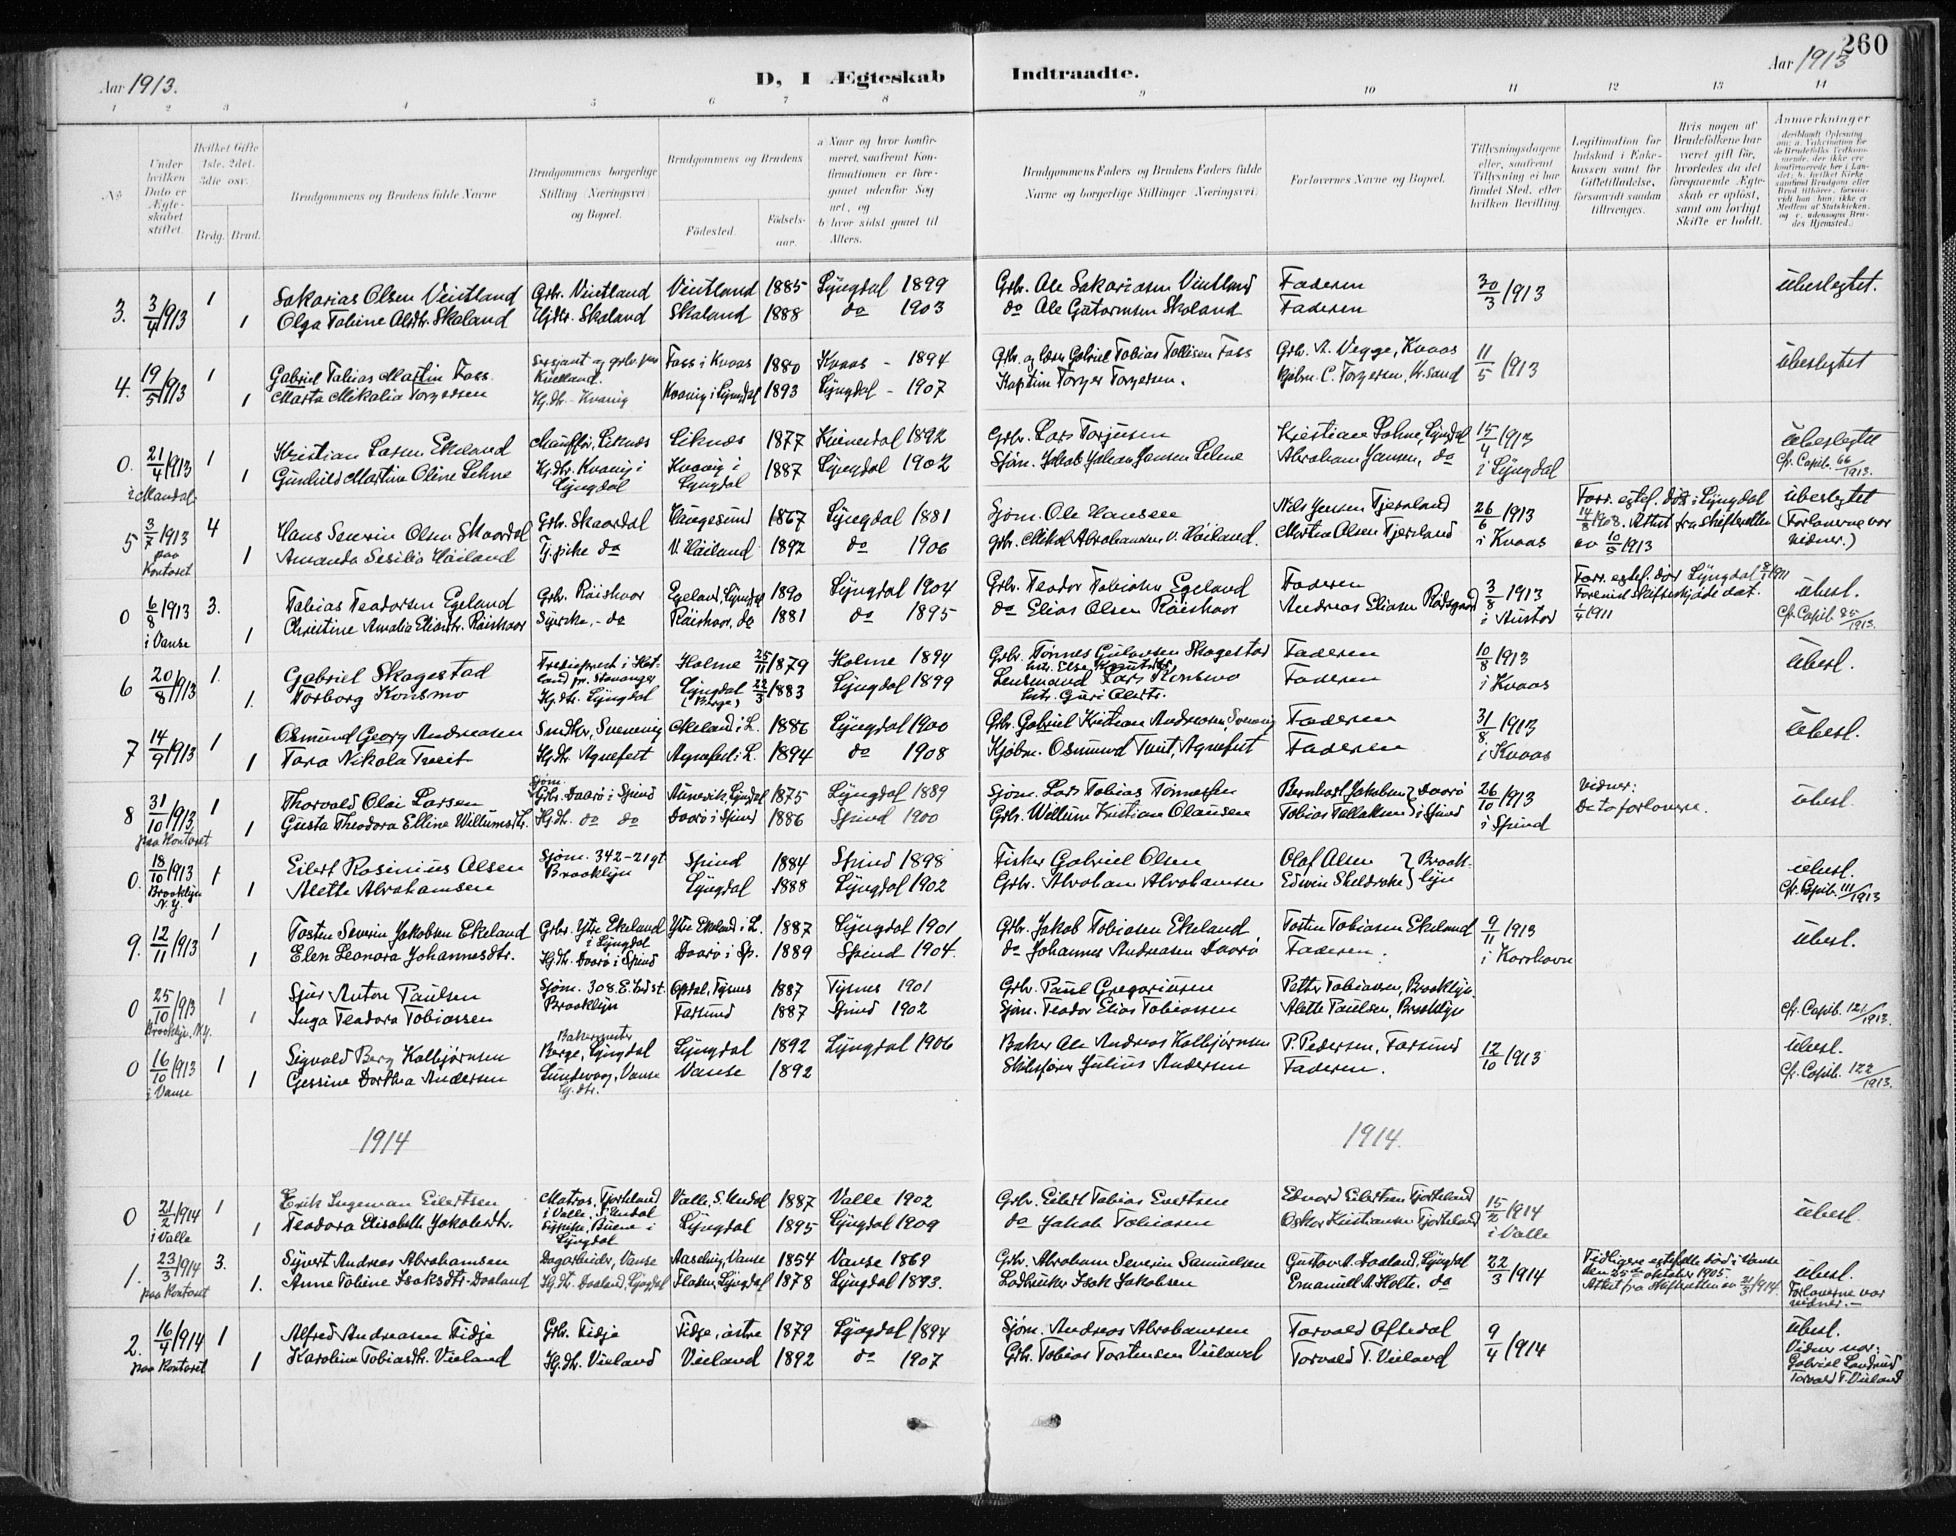 260
Aar 1913.
D, I Ægteskab Indtraadte.
Aar 1913
1 2 3 4 5 6 7 8 9 10 11 12 13 14
No
Under hvilken Dato er Ægteskabet stiftet.
Hvilket Gifte 1ste, 2det, 3die osv.
Brdg. Brud.
Brudgommens og Brudens fulde Navne
Brudgommens borgerlige Stilling (Næringsvei) og Bopæl.
Brudgommens og Brudens
Födested. Födselsaar.
a Naar og hvor konfirmeret, saafremt Konfirmationen er foregaaet udenfor Sognet, og
b hvor sidst gaaet til Alters.
Brudgommens Faders og Brudens Faders fulde Navne og borgerlige Stillinger (Næringsvei).
Forlovernes Navne og Bopæl.
Tillysningsdagene eller, saafremt Tillysning ei har fundet Sted, efter hvilken Bevilling.
Legitimation for Indskud i Enkekassen samt for Giftetilladelse, forsaavidt saadan tiltrænges.
Hvis nogen af Brudefolkene har været gift før, hvorledes da det foregaaende Ægteskab er opløst, samt om lovligt Skifte er holdt.
Anmerkninger
3. 3/4 1913 1 Sakarias Olsen Vintland Grbr. Vintland Vintland 1885 Lyngdal 1899 Grbr. Ole Sakariasen Vintland Faderen 30/3 1913 übeslegtet.
1 Olga Tobine Olsdtr. Skoland Hjdtr. Skoland Skoland 1888 do 1903 do Ole Gutormsen Skoland Faderen
4. 19/5 1913 1 Gabriel Tobias Martin Foss Sersjant og grbr. Foss i Kvaas 1880 Kvaas - 1894 Grbr. og lærer Gabriel Tobias Tollisen Foss Grbr. A. Vegge, Kvaas 11/5 1913 übeslegtet
1 Marta Mikalia Torgersen Hj.dtr. Kvavig Kvavig i Lyngdal 1893 Lyngdal - 1907 Kaptein Torger Torgersen. Kjøbm. C. Torgersen, Kr.sand
0. 21/4 1913 1 Kristian Larsen Ekeland Liknes Liknes 1877 Kvinesdal 1892 Grbr. Lars Torjusen Kristian Lohne, Lyngdal 15/4 1913 übeslegtet
i Mandal 1 Gunhild Martine Oline Lehne Hj.dtr. Kvavig i Lyngdal Kvavig i Lyngdal 1887 Lyngdal 1902 Sjøm. Jakob Johan Jansen Lehne Abraham Jansen, do i Lyngdal Cfr. Copib. 66/1913.
5 3/7 1913 4 Hans Severin Olsen Skoerdal Grbr. Skaardal Haugesund 1867 Lyngdal 1881 Sjøm. Ole Hansen Nils Jensen Tjersland 26/6 1913 Forr. egtef. død i Lyngdal 14/8 1908. Attest fra skifteretten av 10/5 1913 übeslegtet
paa Kontoret 1 Amanda Sesilie Høiland Tj.pike do V. Høiland 1892 do 1906 Grbr. Mikal Abrahamsen V. Høiland. Martin Olsen Tjersland i Kvaas (Forloverne var vidner.)
0 6/8 1913 3. Tobias Teodorsen Egeland Grbr. Røishoor Egeland, Lyngdal 1890 Lyngdal 1904 Grbr. Teodor Tobiasen Egeland Faderen 3/8 1913 Forr. egtef. død Lyngdal 1911 übesl.
i Vanse 1 Christine Amalia Eliasdtr. Røishoor Syerske, - do Røishoor, do 1881 do 1895 do Elias Olsen Røishoor Andreas Eliasen i Austad 1/4 1911 Cfr. Copib. 85/1913.
6 20/8 1913 1. Gabriel Skagestad Stavanger Holme 25/11 1879 Holme 1894 Grbr. Tønnes Gulovsen Skagestad Faderen 10/8 1913 übesl.
1. Torborg Konsmo Hj.dtr. Lyngdal Lyngdal (Berge) 22/3 1883 Lyngdal 1899 Lensmand Lars Konsmo Faderen i Kvaas
7 14/9 1913 1 Osmund Georg Andreasen Svenevig Økeland i L. 1886 Lyngdal 1900 Grbr. Gabriel Kristian Andreasen, Svenevig Faderen 31/8 1913 übesl.
1 Tora Nikola Tveit Hj.dtr. Agnefest Agnefest i L. 1894 do 1908 Kjøbm. Osmund Tveit, Agnefest Faderen i Kvaas
8 31/10 1913 1 Thorvald Olai Larsen Sjøm. Grbr. Daarø i Spind Aunevik, Lyngdal 1875 Lyngdal 1889 Sjøm. Lars Tobias Tønnessen Bernhart Jakobsen Daarø 26/10 1913 Vidner: De to forlovere. übesl.
paa Kontoret 1 Gusta Theodora Elline Willumsdtr. Hj.dtr. do do Daarø i Spind 1886 Spind 1900 Grbr. Willum Kristian Olausen Tobias Tollaksen i Spind i Spind
0. 18/10 1913 1 Eilert Rosinius Olsen Sjøm. 342-21 gt Brooklyn Spind 1884 Spind 1898 Fisker Gabriel Olsen Olaf Olsen Brooklyn übesl.
Brooklyn N.Y. 1 Alette Abrahamsen Lyngdal 1888 Lyngdal 1902 Grbr. Abraham Abrahamsen Edwin Cfr. Copib. 111/1913
9. 12/11 1913 1 Tosten Severin Jakobsen Ekeland Grbr. Ytre Ekeland i Lyngdal Ytre Ekeland i L. 1887 Lyngdal 1901 Grbr. Jakob Tobiasen Ekeland Tosten Tobiasen Ekeland 9/11 1913 übesl.
1 Elen Leonora Johannesdtr. Hj.dtr. Daarø i Spind Daarø i Sp. 1889 Spind 1904. do Johannes Andreasen Daarø Faderen. i Korshavn
0 25/10 1913 1 Sjur Anton Paulsen Sjøm. 308 E. 42 st. Brooklyn Opdal, Tysnes 1887 Tysnes 1901 Grbr. Paul Gregoriusen Petter Tobiassen, Brooklyn.
Brooklyn, N.Y. 1 Inga Teodora Tobiassen Farsund 1887 Spind 1902 Sjøm. Teodor Elias Tobiassen Alette Paulsen, Brooklyn Cfr. Copib. 121/1913.
0 16/10 1913 1 Sigvald Berg Kolbjørnsen Bakermester Berge, Lyngdal Lyngdal 1892 Lyngdal 1906 Baker Ole Andreas Kolbjørnsen P. Pedersen, Farsund 12/10 1913 übesl.
i Vanse 1 Gessine Dorthea Andersen Lundevaag, Vanse Hj.dtr. Vanse 1892 Skibsfører Julius Andersen Faderen. Cfr. Copib. 122/1913.
1914 1914.
0 21/2 1914 1 Erik Ingeman Eilertsen Matros, Fjorteland i Valle, S. Undal Valle, S. Undal 1887 Valle 1902 Grbr. Eilert Tobias Evertsen Edvard Eilertsen Fjorteland 15/2 1914 übesl.
i Valle 1 Teodora Elisabeth Jakobsdtr. Lyngdal Lyngdal 1895 Lyngdal 1909 do Jakob Tobiasen Oskar Kristiansen Fjorteland i Valle
1. 23/3 1914 3. Syvert Andreas Abrahamsen Dagarbeider, Vanse Vanse 1854 Vanse 1869 Grbr. Abraham Severin Samuelsen Gustav A. Aaland, Lyngdal 22/3 1914 Tidligere egtefelle død i Vanse den 25de oktober 1905. Attest fra skifteretten av 21/3 1914. übesl.
paa Kontoret 1. Anne Tobine Isaksdtr. Daaland Hj.dtr. Daaland, Lyngdal Lyngdal 1878 Lyngdal 1893. Isak Jakobsen Emanuel A. Holte, do Forloverne var vidner. -
2. 16/4 1914 1 Alfred Andreasen Fidje Grbr. Fidje Fidje, østre 1879 Lyngdal 1894 Sjøm. Andreas Abrahamsen Torvald Oftedal 9/4 1914 übesl.
paa Kontoret 1 Karoline Tobiasdtr. Vieland Hj.dtr. Vieland Vieland 1892 do 1907 Grbr. Tobias Torstensen Vieland Torvald T. Vieland Vidner var: Gabriel Torvald T. Vieland